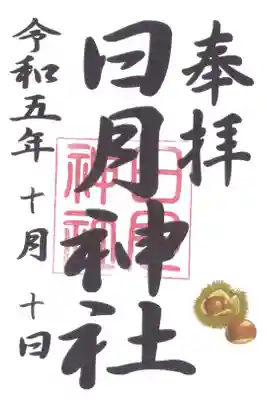 奉拝
日月神社
令和五年 十月 十日
日月
神社